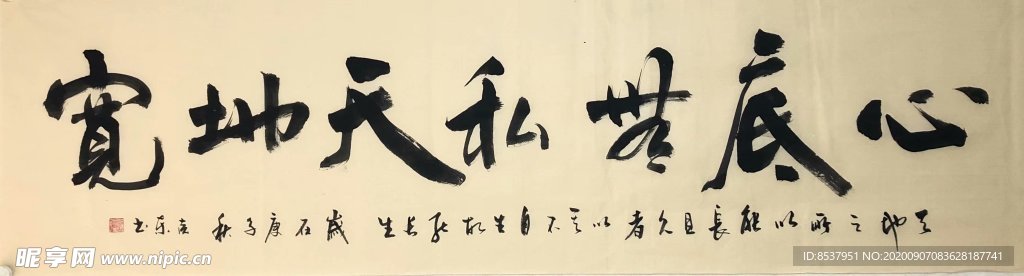 心底無私天地寬
天地之所以能長且久者以其不自生故能長生 歲在庚子秋 亦東書
昵享网 www.nipic.cn
ID:8537951 NO:20200907083628187741